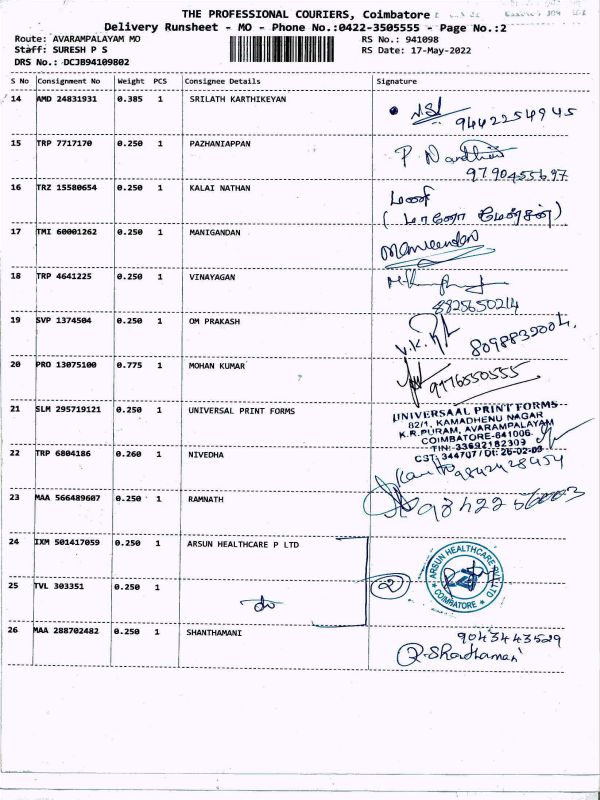 THE PROFESSIONAL COURIERS, Coimbatore
Delivery Runsheet - MO - Phone No.:0422-3505555 - Page No.:2
Route: AVARAMPALAYAM MO RS No.: 941098
Staff: SURESH P S RS Date: 17-May-2022
DRS No.: DCJB94109802
S No Consignment No Weight PCS Consignee Details Signature
14 AMD 24831931 0.385 1 SRILATH KARTHIKEYAN
9442254945
15 TRP 7717170 0.250 1 PAZHANIAPPAN
9790455697
16 TRZ 15580654 0.250 1 KALAI NATHAN
மணி
17 TMI 60001262 0.250 1 MANIGANDAN
18 TRP 4641225 0.250 1 VINAYAGAN
8825650214
19 SVP 1374504 0.250 1 OM PRAKASH
V.K.
20 PRO 13075100 0.775 1 MOHAN KUMAR
21 SLM 295719121 0.250 1 UNIVERSAL PRINT FORMS
UNIVERSAAL PRINT FORMS
82/1, KAMADHENU NAGAR
K.R.PURAM, AVARAMPALAYAM
COIMBATORE-641006.
TIN: 33692182309
CST: 344707 / Dt: 26-02-03
22 TRP 6804186 0.260 1 NIVEDHA
9842428454
23 MAA 566489607 0.250 1 RAMNATH
24 IXM 501417059 0.250 1 ARSUN HEALTHCARE P LTD
ARSUN HEALTHCARE PVT LTD
COIMBATORE
25 TVL 303351 0.250 1 do
2
26 MAA 288702482 0.250 1 SHANTHAMANI
9043443529